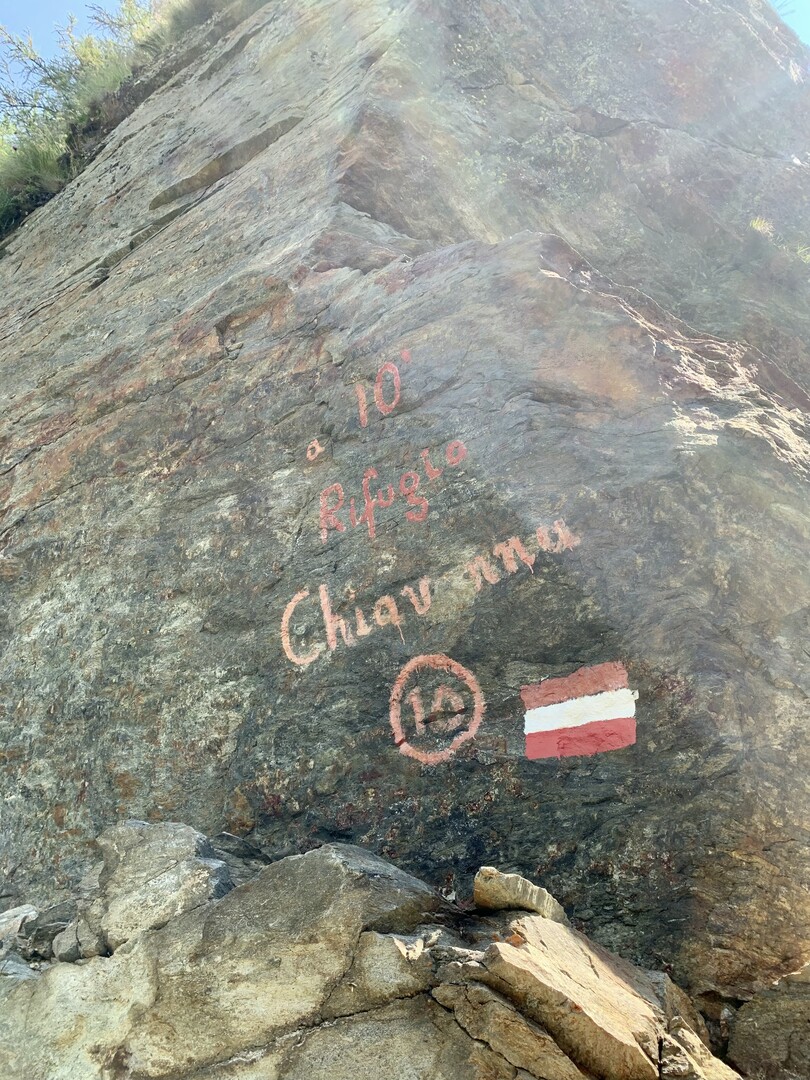 a 10'
Rifugio
Chiavenna
10